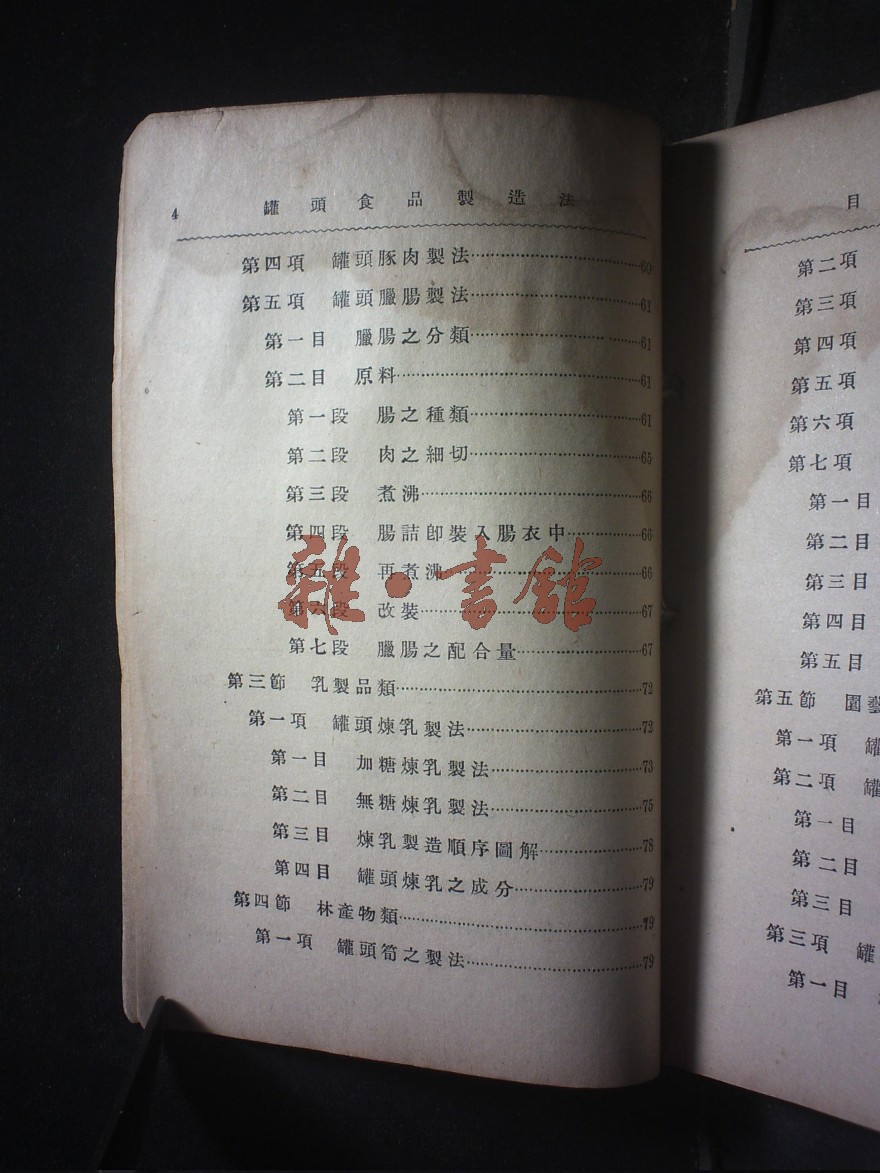 4 罐頭食品製造法
第四項 罐頭豚肉製法……60
第五項 罐頭臘腸製法……61
第一目 臘腸之分類……61
第二目 原料……61
第一段 腸之種類……61
第二段 肉之細切……65
第三段 煮沸……66
第四段 腸詰卽裝入腸衣中……66
第五段 再煮沸……66
第六段 改裝……67
第七段 臘腸之配合量……67
第三節 乳製品類……72
第一項 罐頭煉乳製法……72
第一目 加糖煉乳製法……73
第二目 無糖煉乳製法……75
第三目 煉乳製造順序圖解……78
第四目 罐頭煉乳之成分……79
第四節 林產物類……79
第一項 罐頭筍之製法……79
雜·書館
目
第二項
第三項
第四項
第五項
第六項
第七項
第一目
第二目
第三目
第四目
第五目
第五節 園藝
第一項 罐
第二項 罐
第一目
第二目
第三目
第三項 罐
第一目